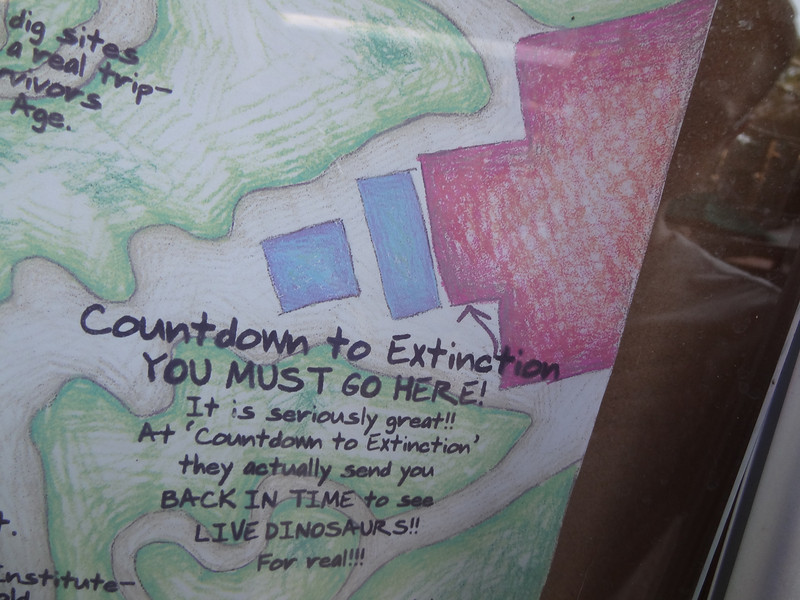 dig sites
a real trip-
rvivors
Age.
Countdown to Extinction
YOU MUST GO HERE!
It is seriously great!!
At 'Countdown to Extinction'
they actually send you
BACK IN TIME to see
LIVE DINOSAURS!!
For real!!!
t.
Institute-
old